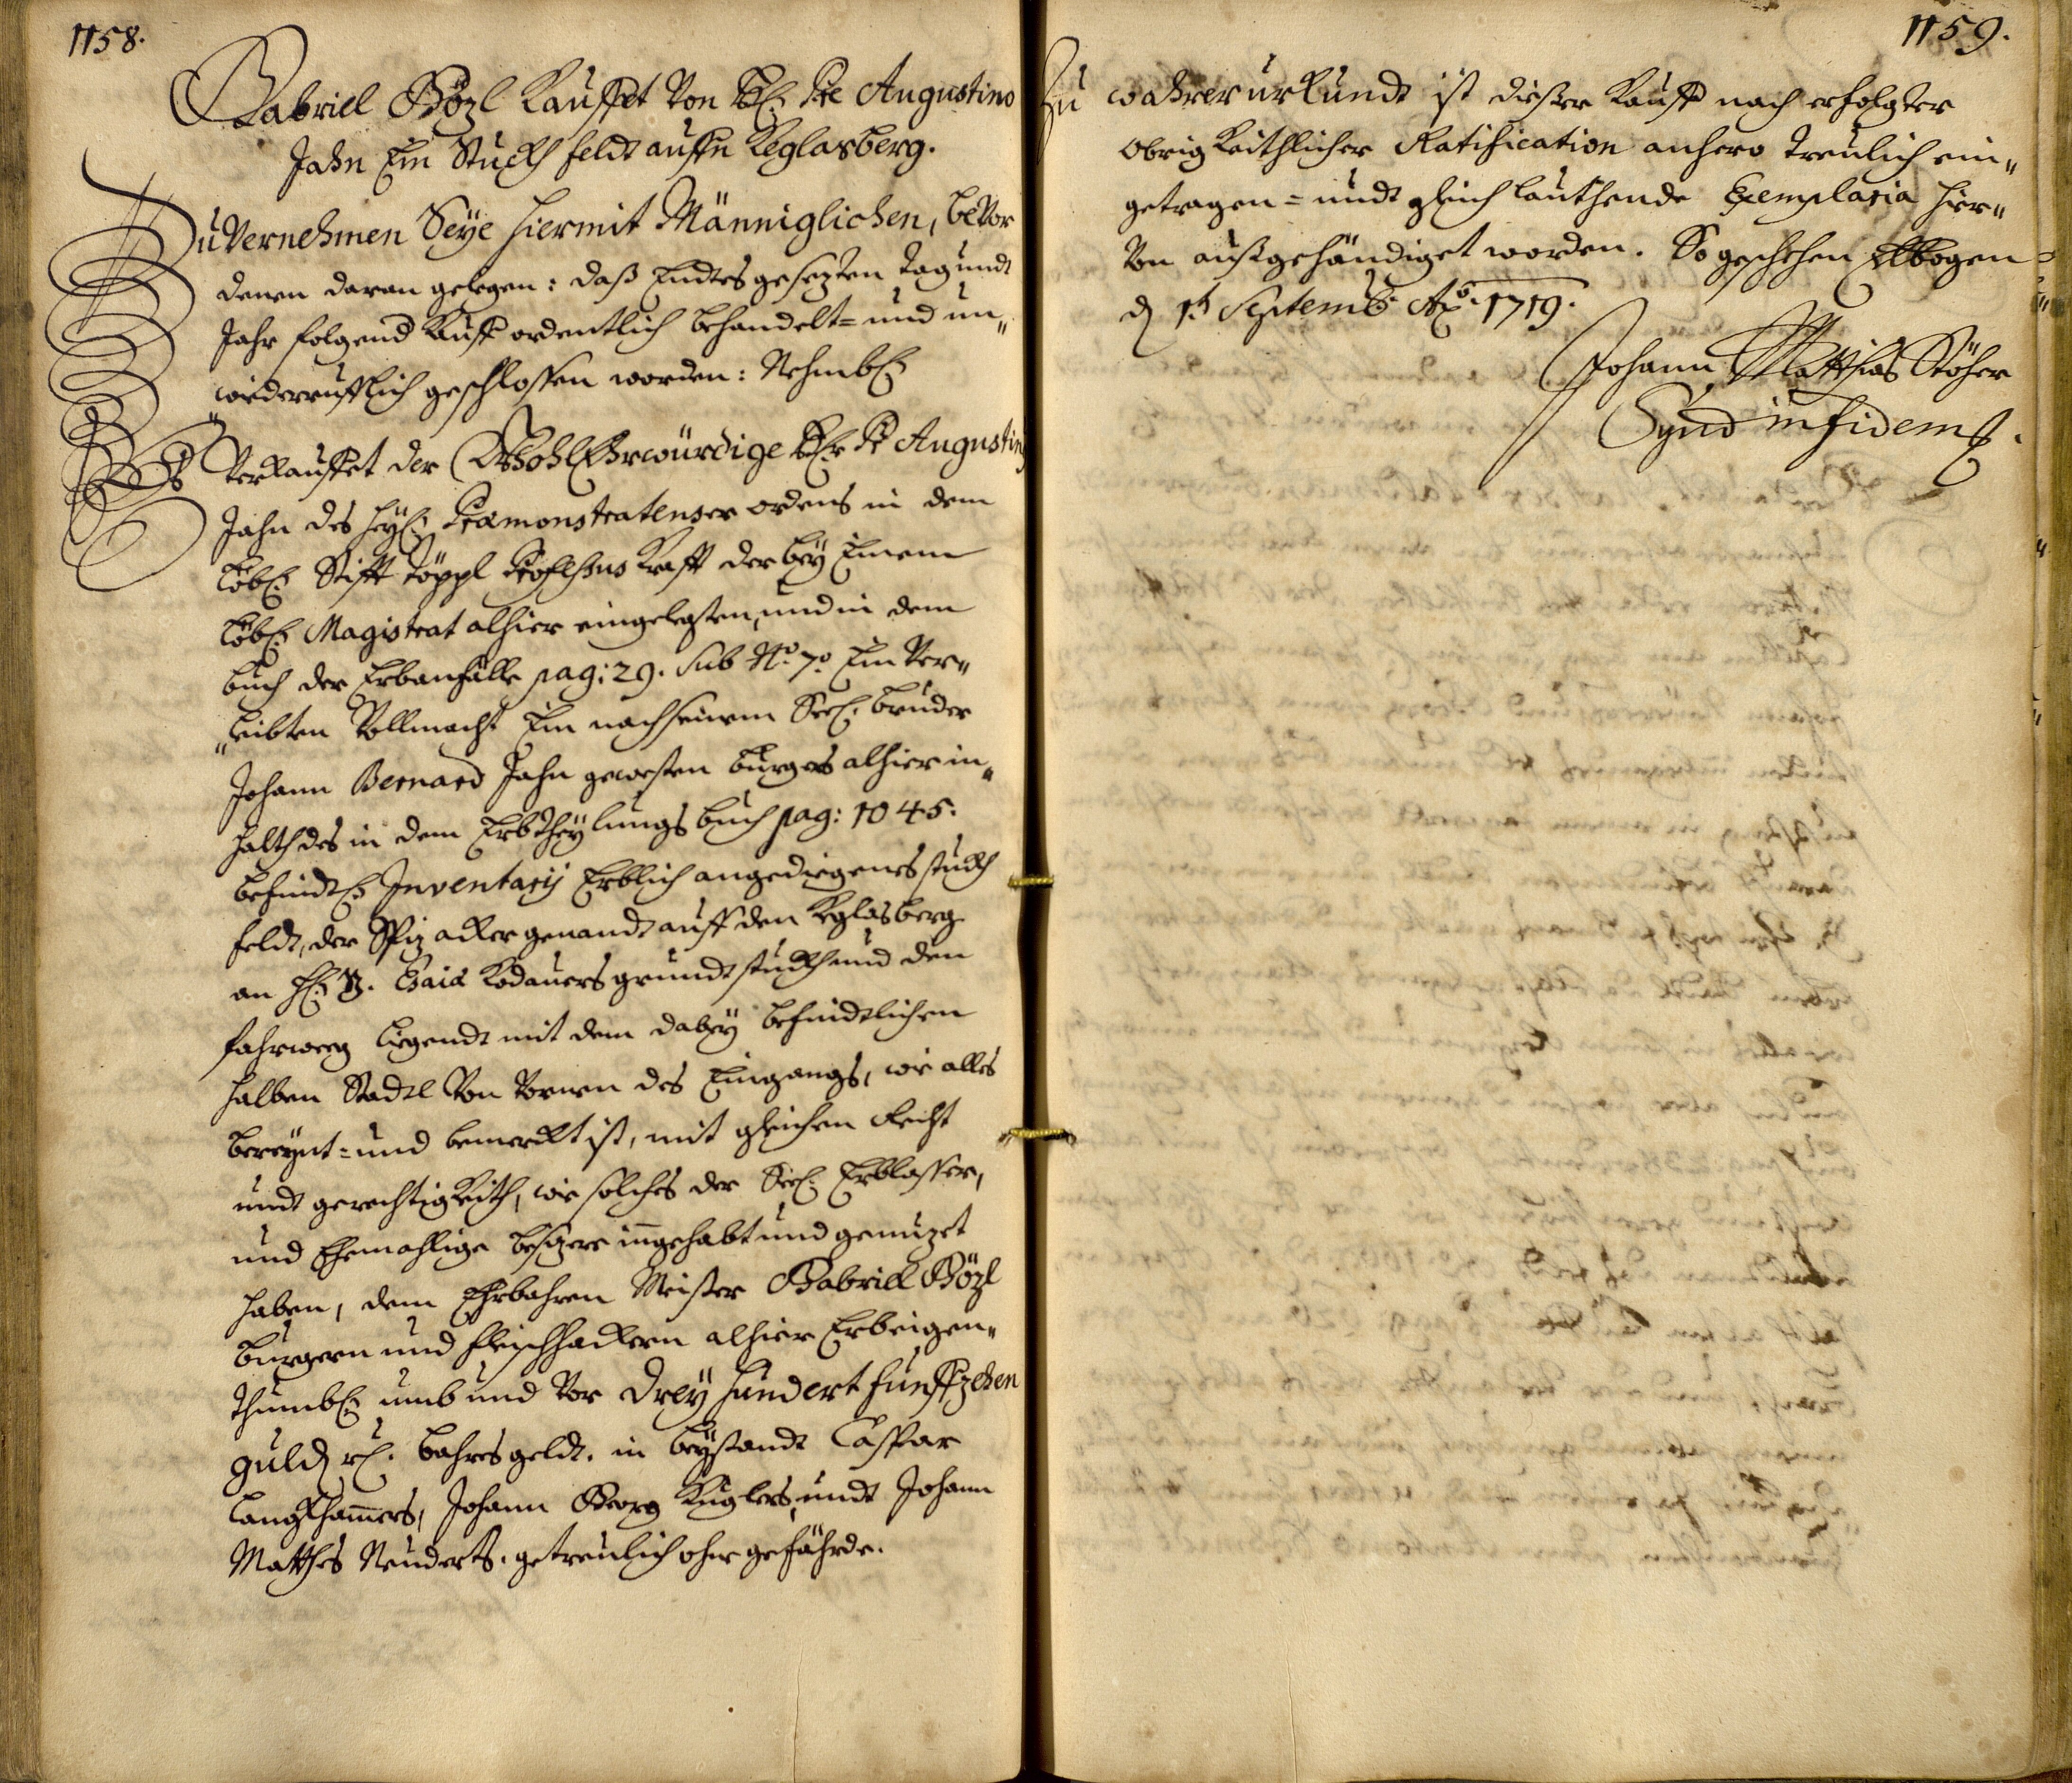 1158.
Gabriell Bözl Kauffet von Tit. Pre Augustino
Jahn Ein Stuckh feldt auffn Keglasberg.
Zu Vernehmen Seÿe hiermit Männiglichen, bevor
denen daran gelegen: daß Endtes gesezten Tag undt
Jahr folgend Kauff ordentlich behandelt= und un„
„wiederrufflich geschlossen worden: Nehmbl:
Es Verkauffet der WohlEhrwürdige Augustin
Jahn des heÿl: Præmonstratenser ordens in dem
Löbl: Stifft Töppl Professus Krafft der beÿ Einem
Löbl: Magistrat alhier eingelegten, und in dem
buch der Erbanfälle pag: 29. sub No. 70. Ein Ver„
„leibten Vollmacht Ein nach seinem Seel: bruder
Johann Bernard Jahn gewesten burgers alhier in„
halth des in dem Erbtheÿlungs buch pag: 1045.
befindl: Inventarÿ Erblich angediegenes stuckh
feldt, der Spiz acker genandt auff den Keglasberg
an H: Esaiæ Kodauers grundtstuckh und den
fahrweeg liegendt mit dem dabeÿ befindtlichen
halben Stadl Von Vornen des Eingangs, wie alles
bereÿnt= und bemerckt ist, mit gleichen Recht
undt gerechtigkeith, wie solches der Seel: Erblasser,
und Ehemahlige besizere inngehabt und genuzet
haben, dem Ehrbahren Meister Gabriell Bözl
burgern und fleischhackern alhier Erbeigen„
thumbl: umb und vor dreÿ hundert funffzehen
guld rl: bahres geldt. in beÿstandt Caspar
Langkhamers, Johann Georg Kuglers, undt Johann
Matthes Neuderts. getreulich ohne gefährde.
1159.
Zu wahrer urkundt ist dießer Kauff nach erfolgter
Obrigkeithlicher Ratification anhero treulich ein„
getragen= undt gleichlauthende Exemplaria hier„
Von außgehändiget worden. So geschehen Elbogen
d 1t Septemb: Ao. 1719.
Johann Matthias Stöhr
Synd in fidem